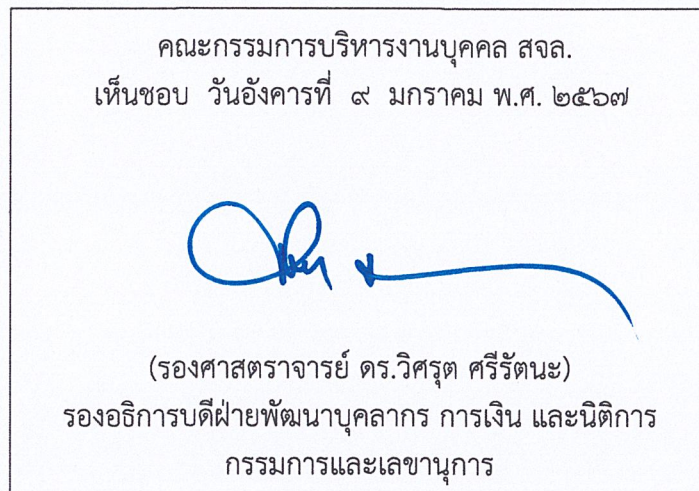 คณะกรรมการบริหารงานบุคคล สจล.
เห็นชอบ วันอังคารที่ ๙ มกราคม พ.ศ. ๒๕๖๗
(รองศาสตราจารย์ ดร.วิศรุต ศรีรัตนะ)
รองอธิการบดีฝ่ายพัฒนาบุคลากร การเงิน และนิติการ
กรรมการและเลขานุการ